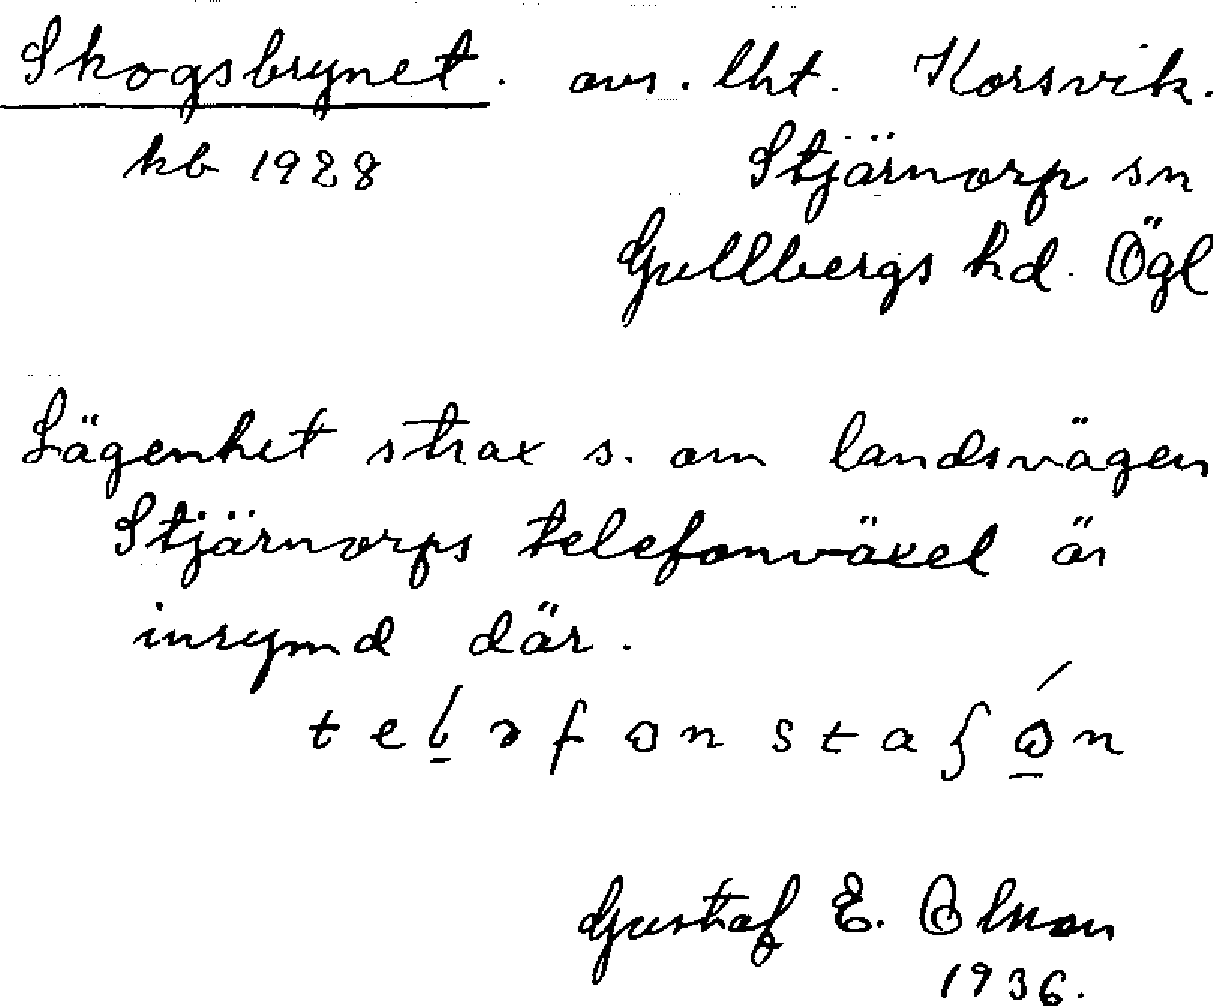 Skogsbrynet. avs. lht. Korsvik.
kb 1928 Stjärnorp sn
Gullbergs hd. Ögl
Lägenhet strax s. om landsvägen
Stjärnorps telefonväxel är
inrymd där.
Gustaf E. Olson
1936.